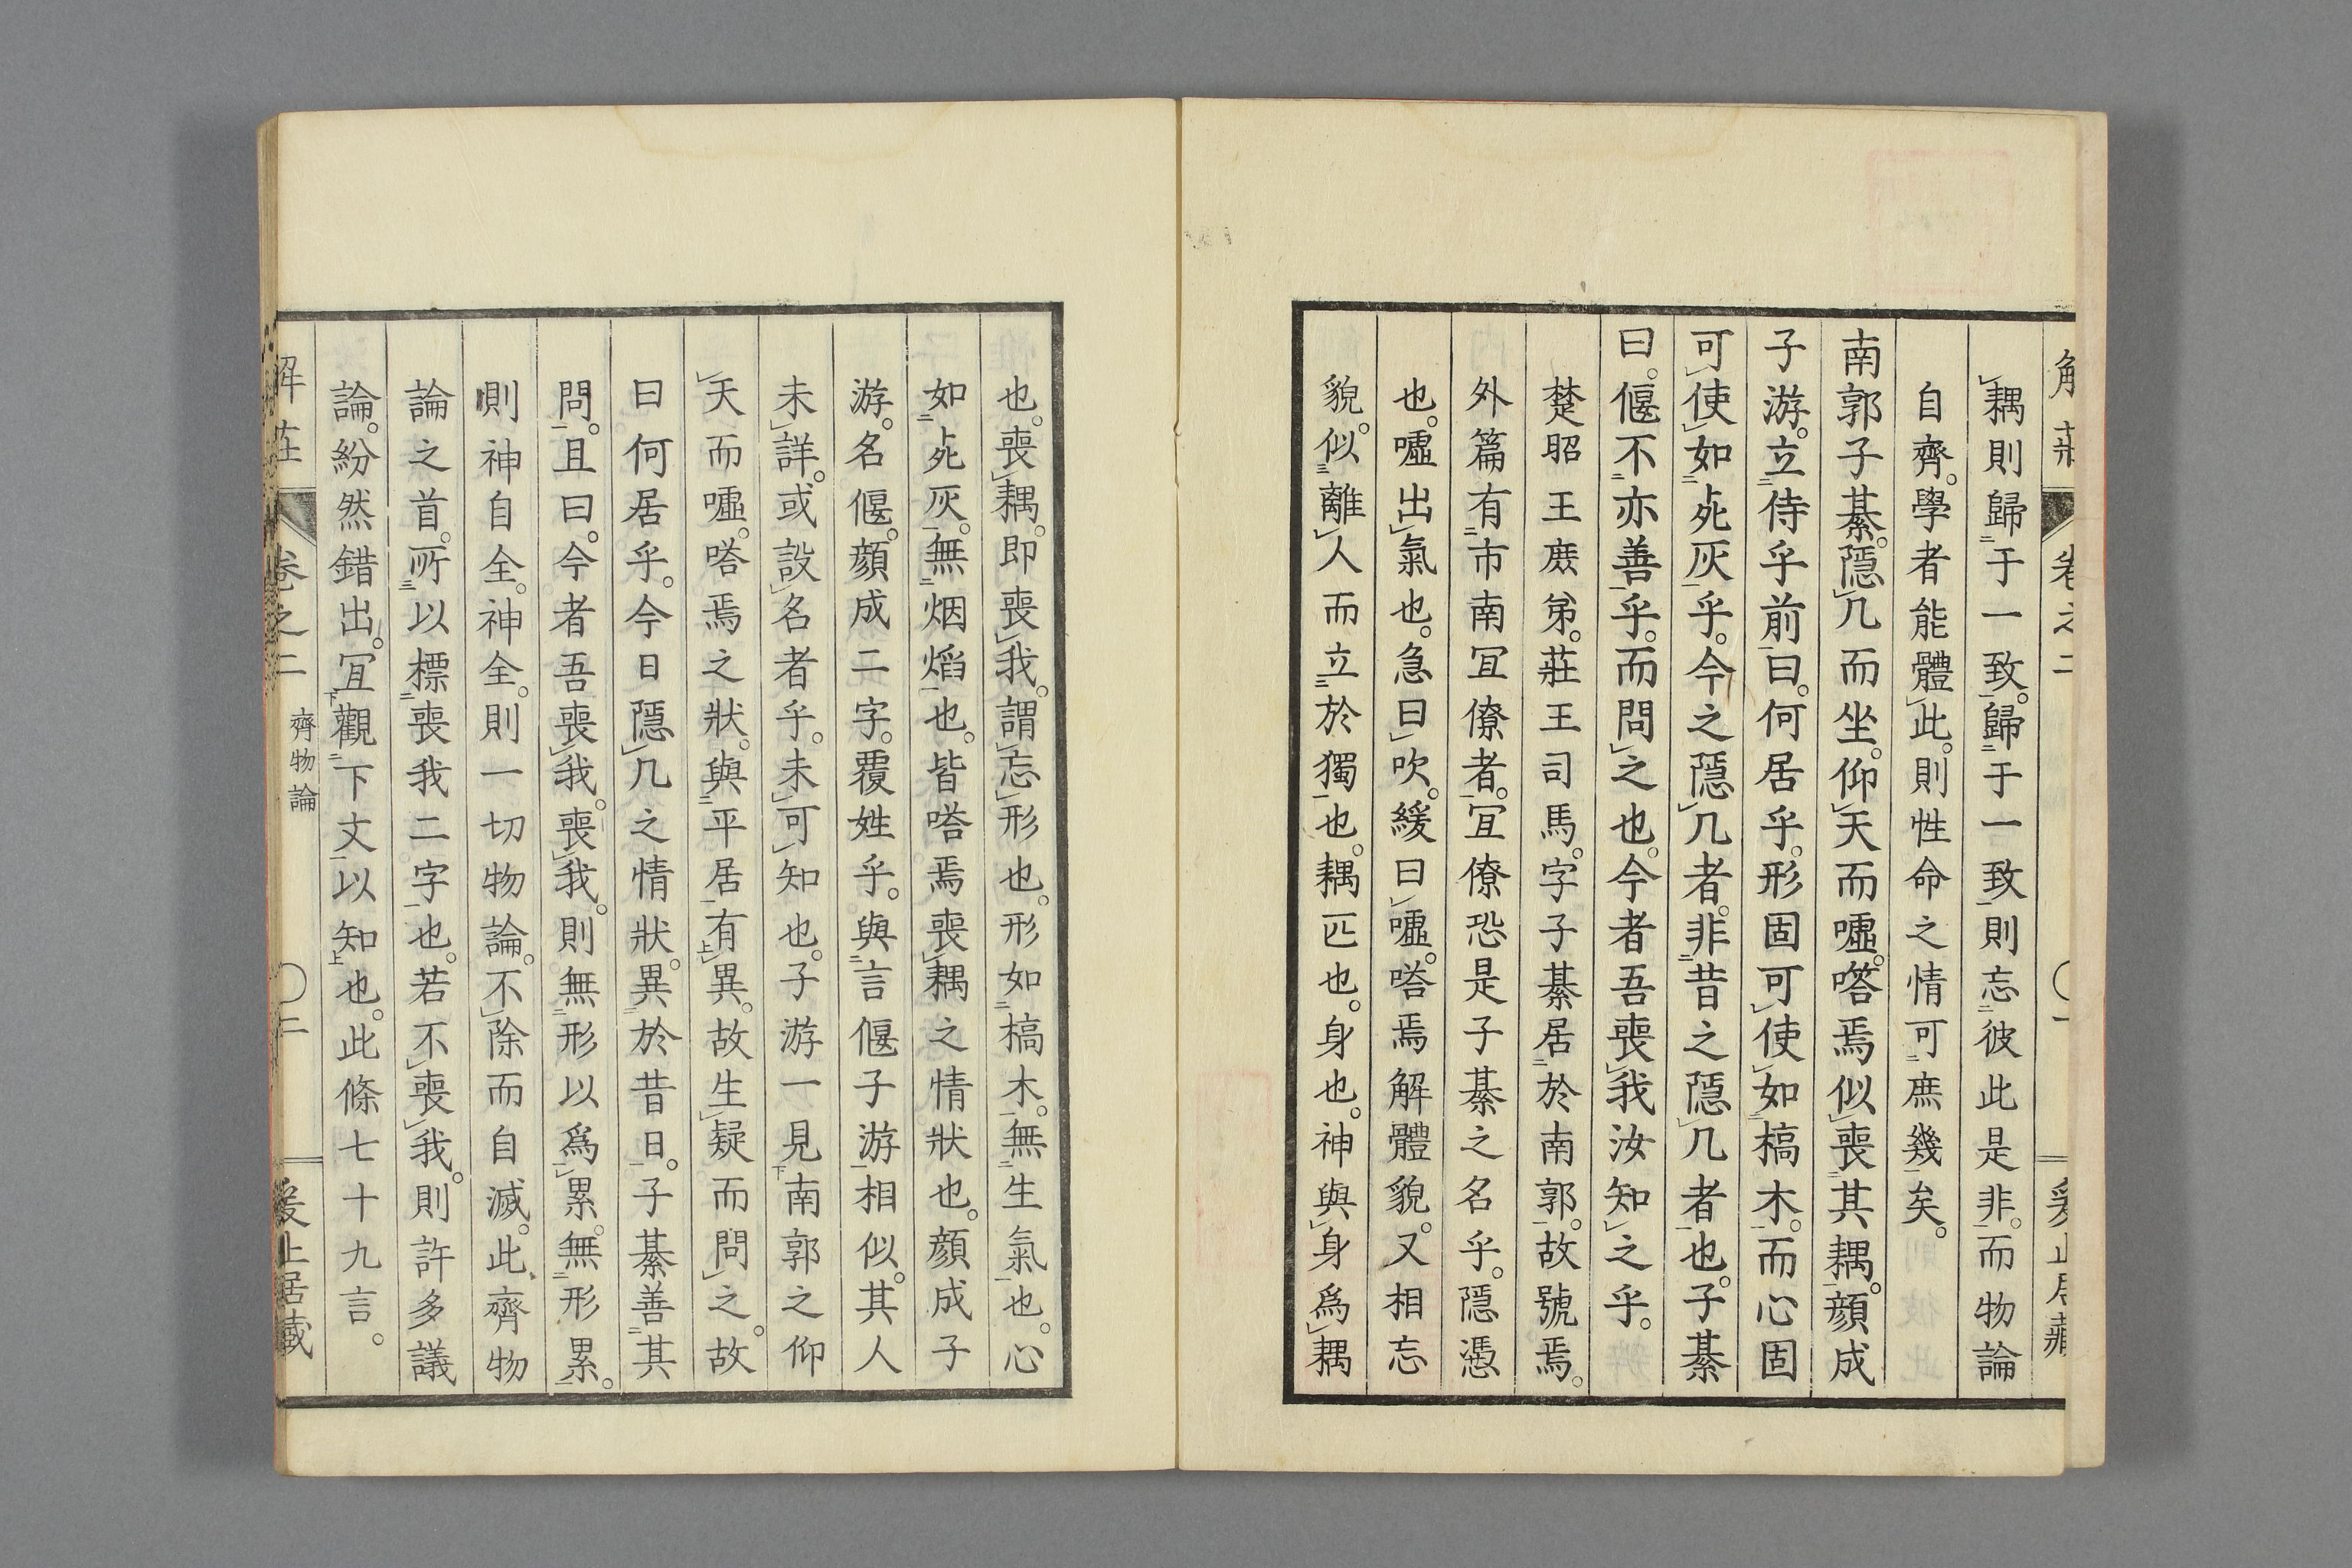 解莊 卷之二 〇一 爰止居藏
耦則歸于一致。歸于一致則忘彼此是非。而物論
自齊。學者能體此。則性命之情可庶幾矣。
南郭子綦。隱几而坐。仰天而噓。嗒焉似喪其耦。顏成
子游。立侍乎前曰。何居乎。形固可使如槁木。而心固
可使如死灰乎。今之隱几者。非昔之隱几者也。子綦
曰。偃不亦善乎。而問之也。今者吾喪我汝知之乎。
楚昭王庶弟。莊王司馬。字子綦居於南郭。故號焉。
外篇有市南冝僚者。冝僚恐是子綦之名乎。隱憑
也。噓出氣也。急曰吹。緩曰噓。嗒焉解體貌。又相忘
貌。似離人而立於獨也。耦匹也。身也。神與身爲耦
也。喪耦。即喪我。謂忘形也。形如槁木。無生氣也。心
如死灰。無烟焰也。皆嗒焉喪耦之情狀也。顏成子
游。名偃。顏成二字。覆姓乎。與言偃子游相似。其人
未詳。或設名者乎。未可知也。子游一見南郭之仰
天而噓。嗒焉之狀。與平居有異。故生疑而問之。故
曰何居乎。今日隱几之情狀。異於昔日。子綦善其
問。且曰。今者吾喪我。喪我。則無形以爲累。無形累。
則神自全。神全。則一切物論。不除而自滅。此齊物
論之首。所以標喪我二字也。若不喪我。則許多議
論。紛然錯出。冝觀下文以知也。此條七十九言。
解莊 卷之二 齊物論 〇二 爰止居藏